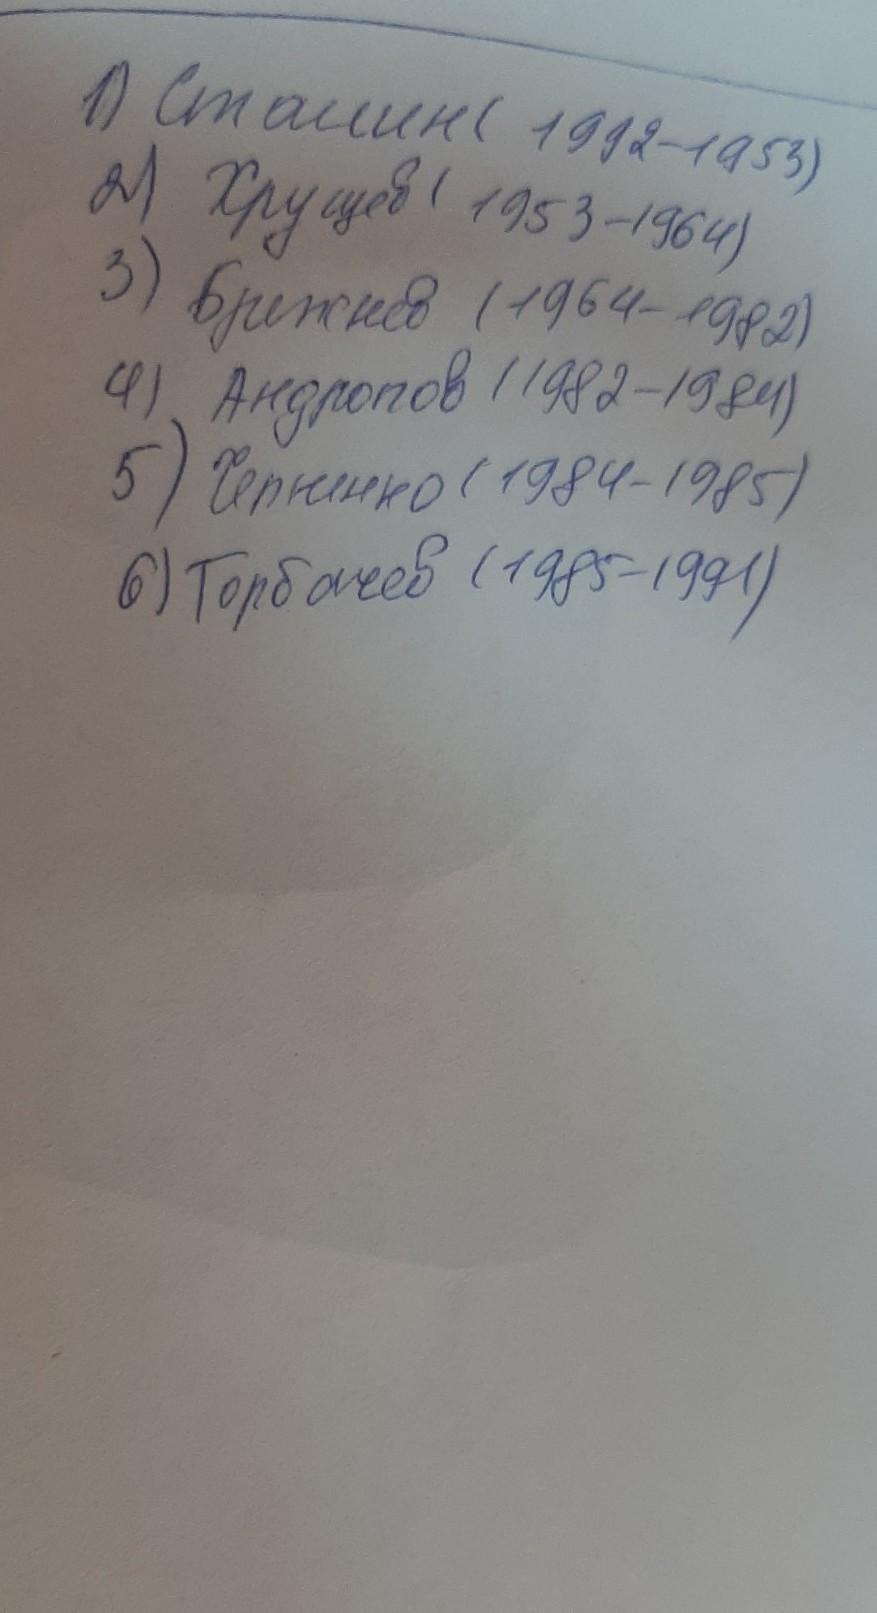 1) Сталин ( 1992-1953)
2) Хрущев ( 1953-1964)
3) Брежнев (1964-1982)
4) Андропов (1982-1984)
5) Черненко (1984-1985)
6) Горбачев (1985-1991)